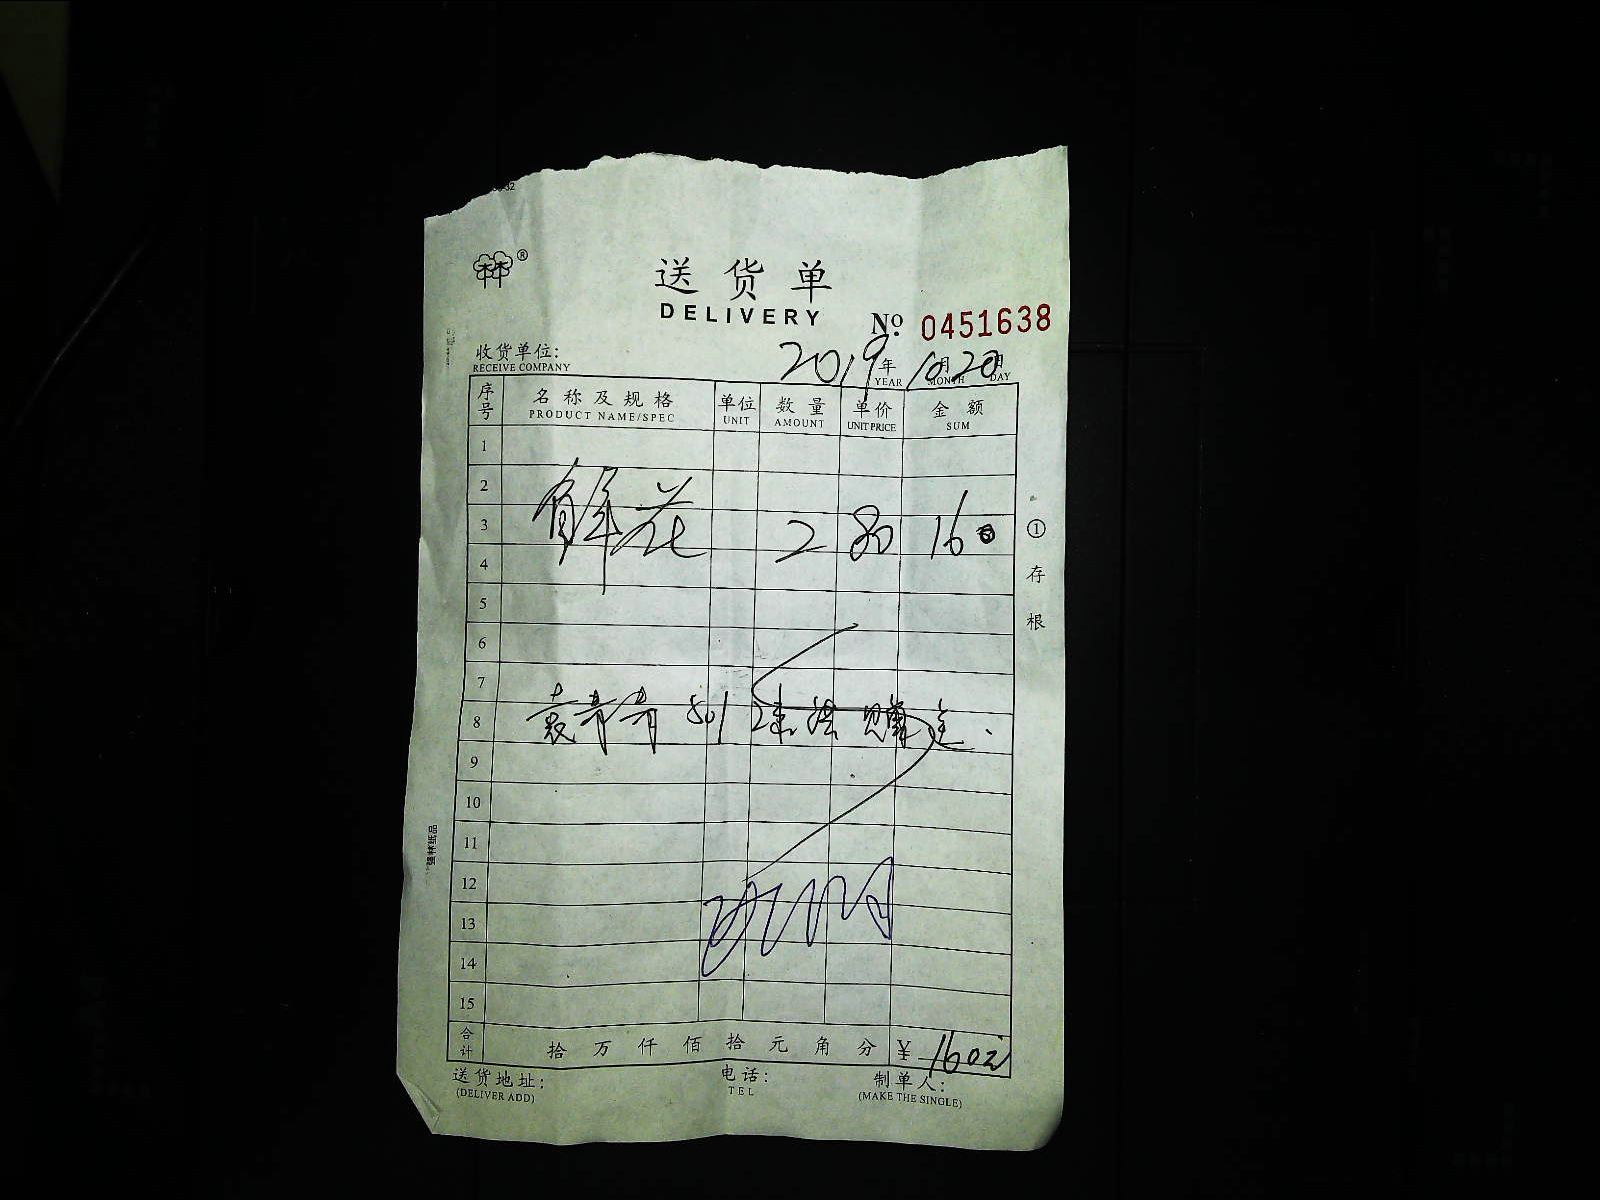 送货单
DELIVERY
№ 0451638
收货单位:
RECEIVE COMPANY
2019年10月20日
YEAR MONTH DAY
序号 名称及规格 单位 数量 单价 金额
PRODUCT NAME/SPEC UNIT AMOUNT UNIT PRICE SUM
1
2
3 鲜花 2 80 160
4
5
6
7
8 袁青青 501 赠送.
9
10
11
12
13
14
15
合计 拾 万 仟 佰 拾 元 角 分 ¥ 160元
送货地址: 电话: 制单人:
(DELIVER ADD) TEL (MAKE THE SINGLE)
①存根
强林纸品